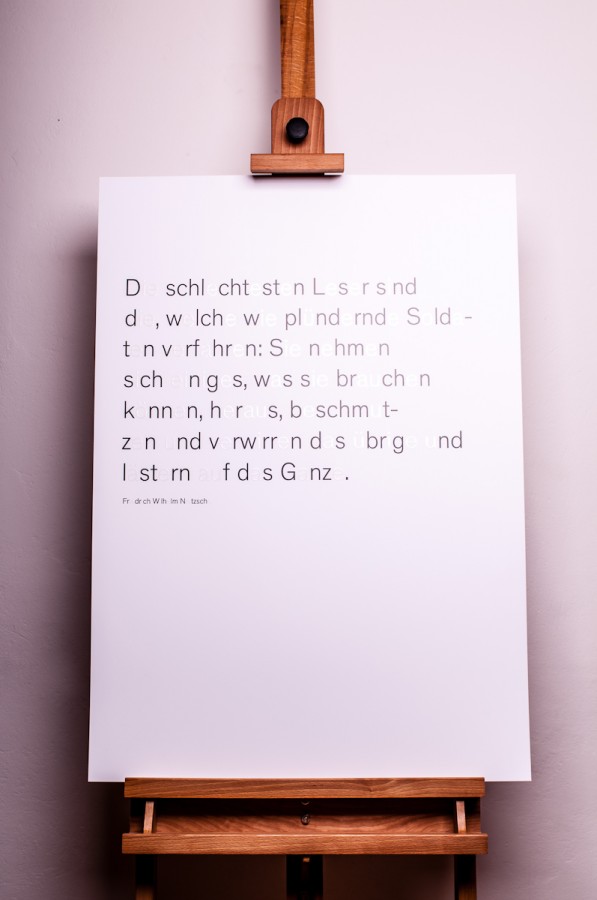 D schl cht st n L s r s nd
d , w lch w pl nd rnd S ld -
t n v rf hr n: S n hm n
s ch n g s, w s s br ch n
k nn n, h r s, b schm t-
z n nd v rw rr n d s br g nd
l st rn f d s G nz .
Fr dr ch W lh lm N tzsch